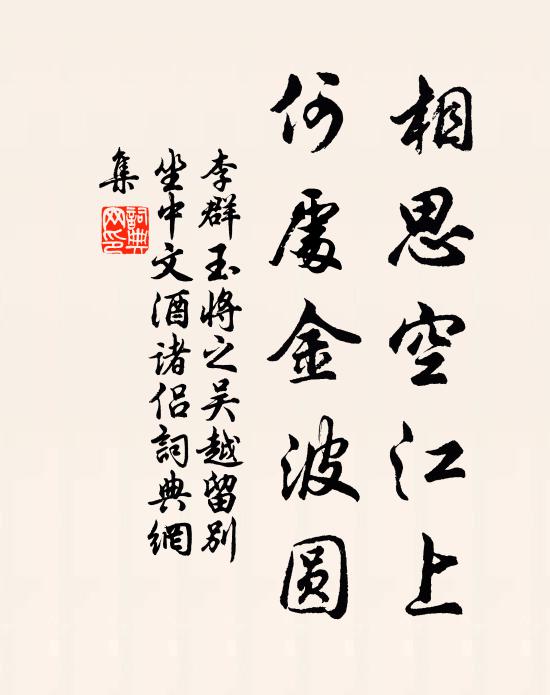 相思空江上
何處金波圆
李群玉将之吴越留别
坐中文酒诸侣詞典網
集
詞典网印